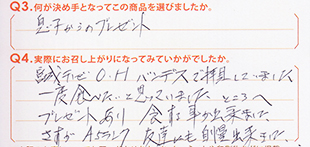 Q3.何が決め手となってこの商品を選びましたか。
息子からのプレゼント
Q4.実際にお召し上がりになってみていかがでしたか。
テレビO.Hバンデスで拝見していました
一度食べたいと思っていました ところへ
プレゼントあり 食する事が出来ました
さすがA5ランク 友達にも自慢出来ました。